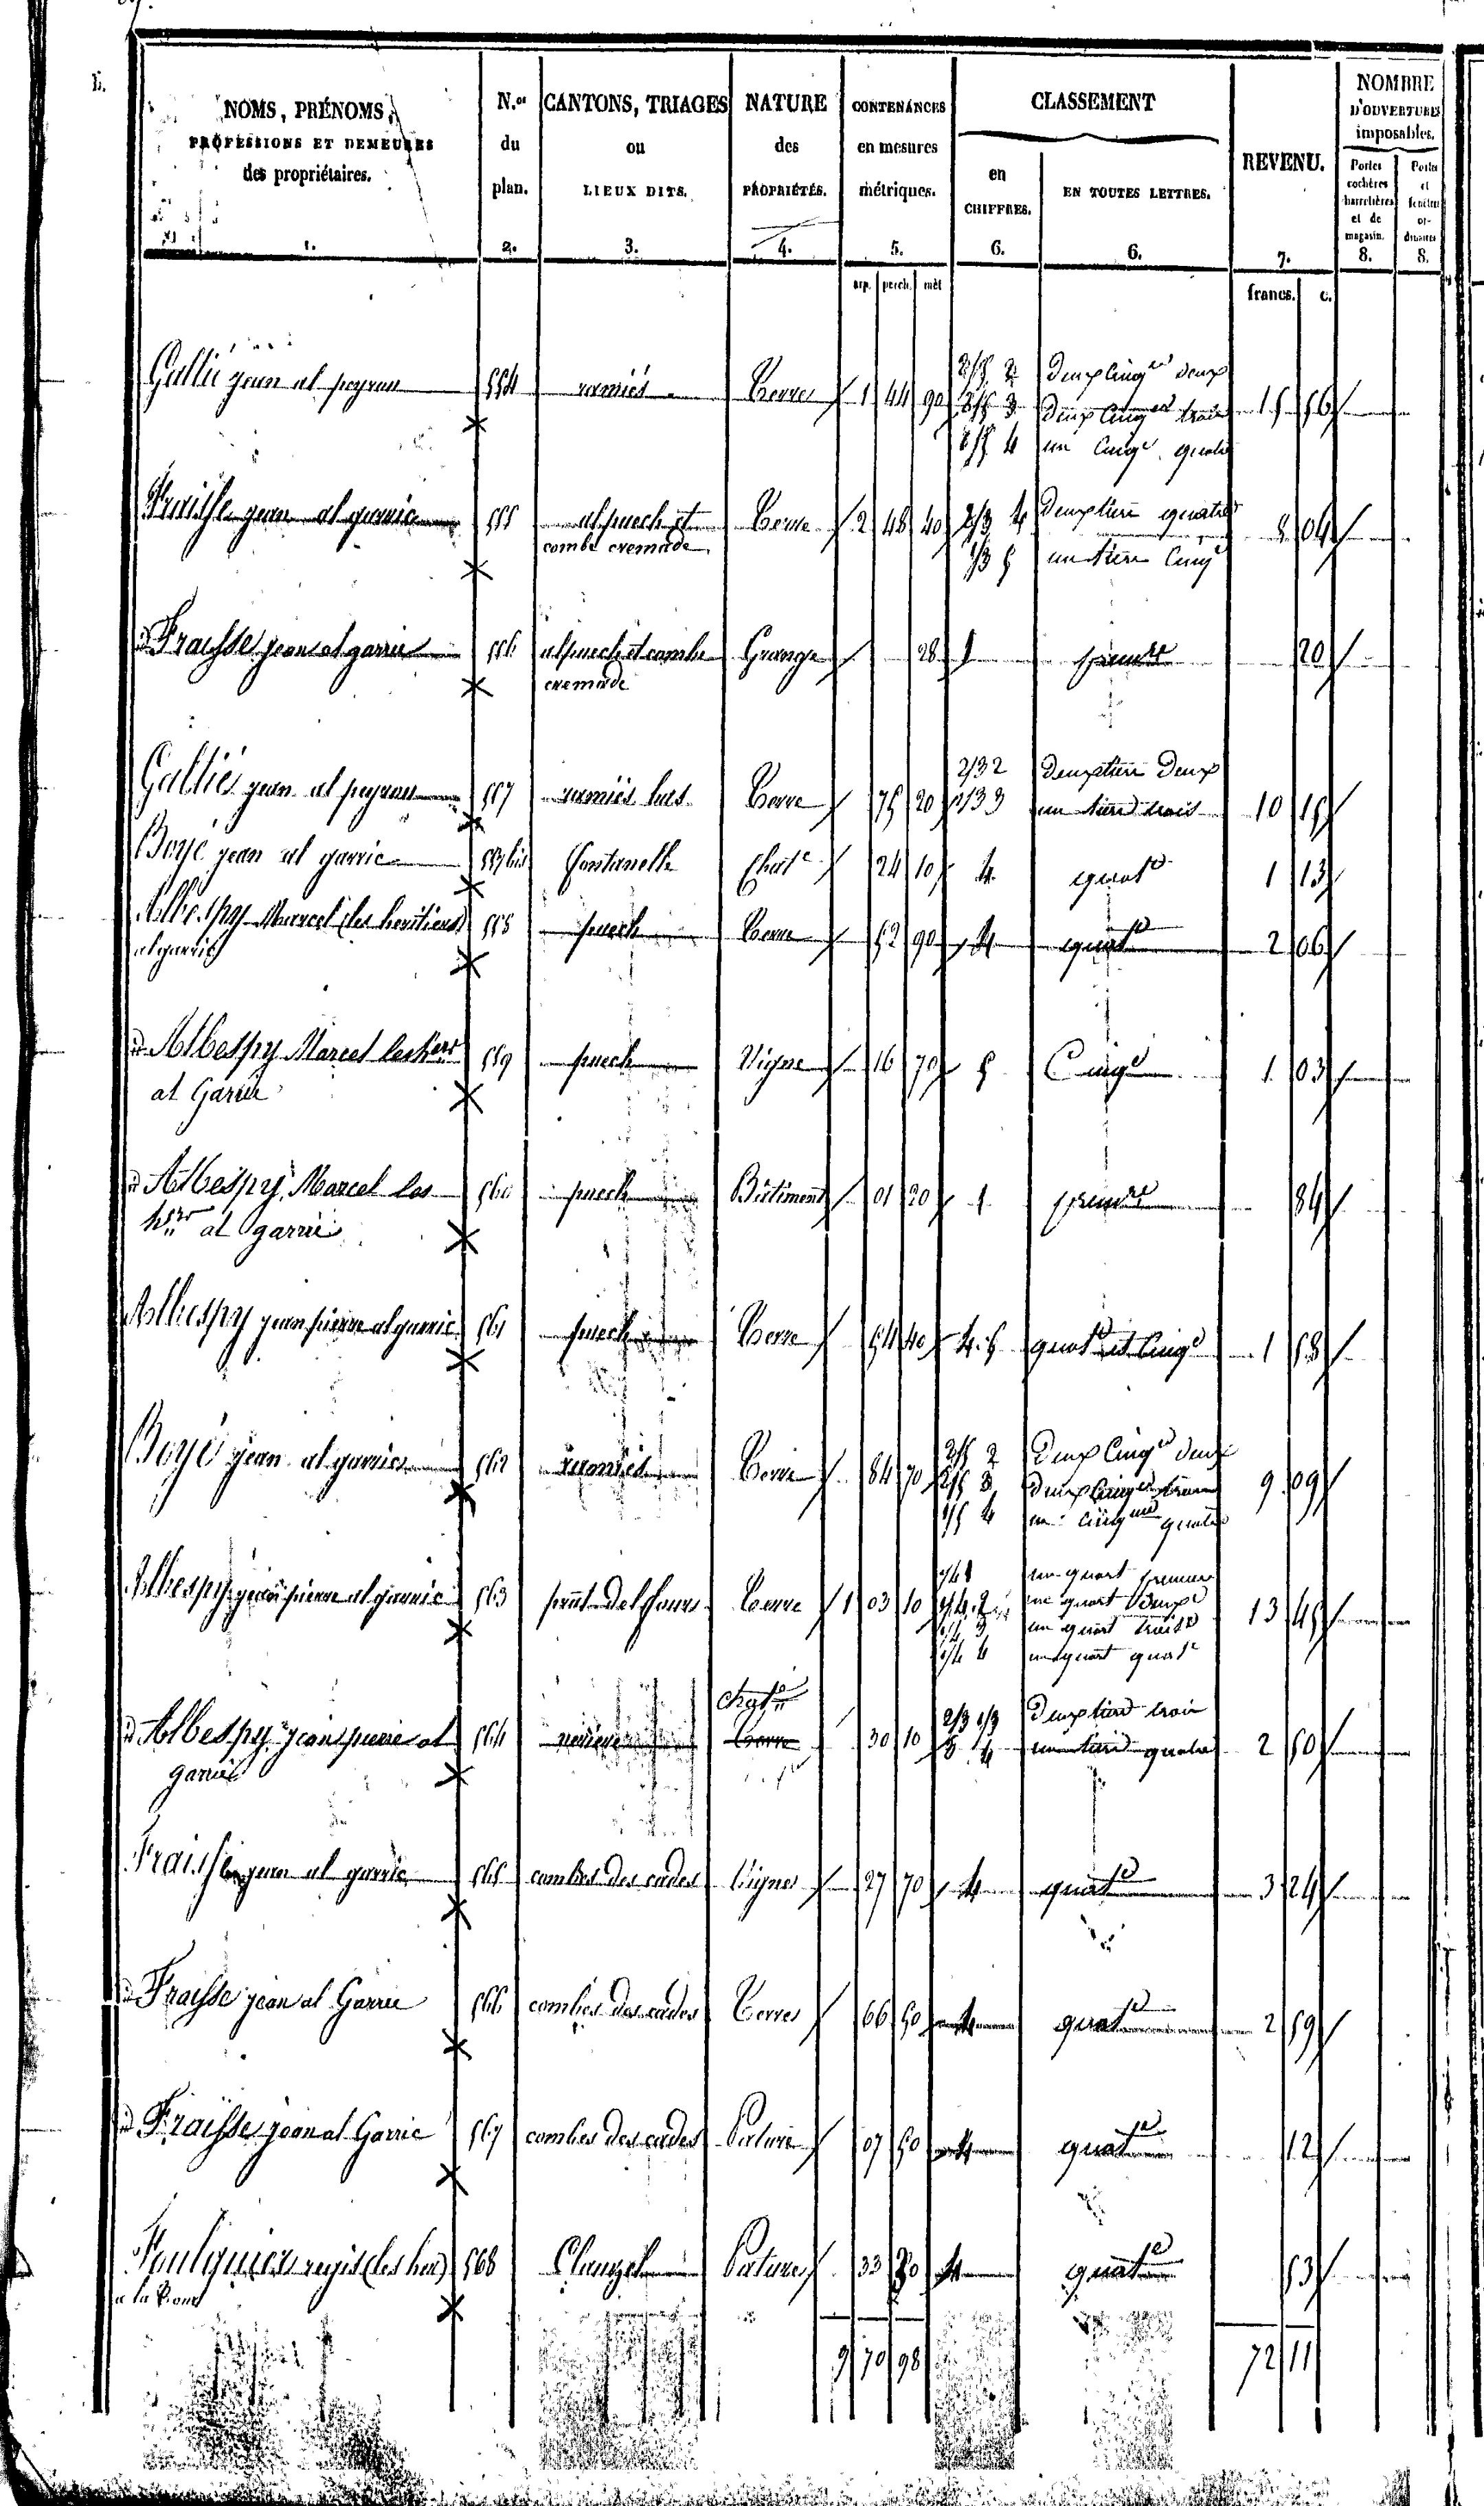 NOMS, PRÉNOMS, PROFESSIONS ET DEMEURES des propriétaires. 1. | N.os du plan. 2. | CANTONS, TRIAGES ou LIEUX DITS. 3. | NATURE des PROPRIÉTÉS. 4. | CONTENANCES en mesures métriques. 5. | CLASSEMENT en CHIFFRES. 6. | EN TOUTES LETTRES. 6. | REVENU. 7. | NOMBRE D'OUVERTURES imposables. Portes cochères charretières et de magasin. 8. | Portes et fenêtres ordinaires 8.
arp. perch. mèt francs. c.
Gallié jean al peyrou 554 ramiés Terres 1 44 90 2/5 2 deux Cinqes deux
2/5 3 deux Cinqes trois 15 56
1/5 4 un Cinqe quatre
Fraisse jean al garric 555 al puech et Terre 2 48 40 2/3 4 deux tiers quatre 8 04
combe cremade 1/3 5 un tiers Cinqe
id Fraysse jean al garric 556 al puech et combe Grange 28 1 premre 20
cremade
Galliés jean al peyrou 557 ramiés bas Terre 75 20 2/3 2 deux tiers deux
1/3 3 un tiers trois 10 15
Boyé jean al garric 557 bis fontanelle Chate 24 10 4 quate 1 13
Albespy Marcel (les heritiers) 558 puech Terre 52 90 4 quate 2 06
al garric
id Albespy Marcel les hers 559 puech Vigne 16 70 5 Cinqe 1 03
al Garric
id Albespy Marcel les 560 puech Bâtiment 01 20 1 premre 84
hers al garric
Albespy jean pierre al garric 561 puech Terre 54 40 4. 5 quate et Cinqe 1 58
Boyé jean al garric 562 ramiés Terre 84 70 2/5 2 Deux Cinqes deux
2/5 3 deux Cinqes trois 9 09
1/5 4 un Cinqme quatre
Albespy jean pierre al garric 563 prat del four Terre 1 03 10 1/4 1 un quart premier
1/4 2 un quart deuxe 13 45
1/4 3 un quart troise
1/4 4 un quart quate
chate
id Albespy jean pierre al 564 Terre 30 10 2/3 1/3 deux tiers trois
garric 3 4 un tiers quatre 2 50
Fraisse jean al garric 565 combes des cades Vignes 27 70 4 quate 3 24
id Fraysse jean al Garric 566 combes des cades Terres 66 50 4 quate 2 59
id Fraïsse jean al Garric 567 combes des cades Pature 07 50 4 quate 12
Foulquier regis (les hers) 568 Clauzel Patures 33 4 quate 53
a la
9 70 98 72 11